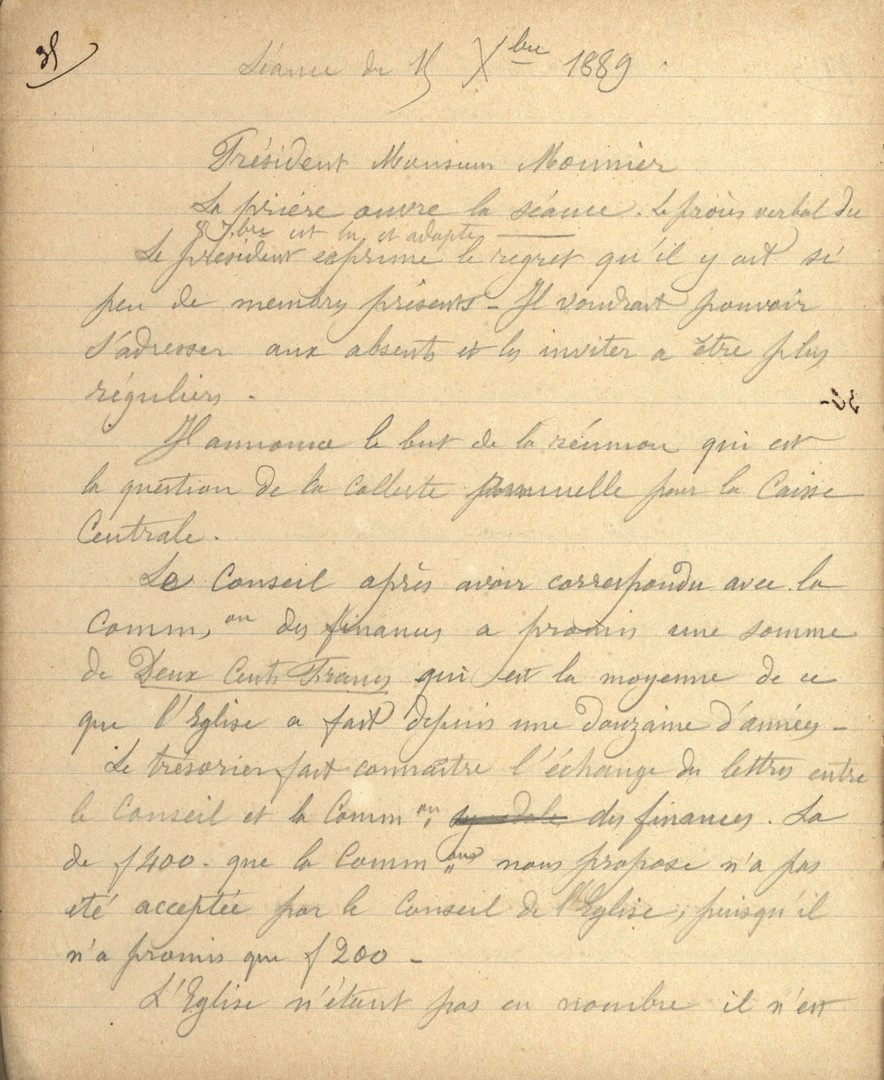 35
Séance du 15 Xbre 1889.
Président Monsieur Mounier
La prière ouvre la séance. Le procès verbal du
8 7bre est lu et adopté
Le président exprime le regret qu'il y ait si
peu de membres présents - Il voudrait pouvoir
s'adresser aux absents et les inviter a être plus
réguliers.
Il annonce le but de la réunion qui est
la question de la collecte pour la Caisse
Centrale.
Le Conseil après avoir correspondu avec la
Comm.on des finances a promis une somme
de Deux Cents Francs qui est la moyenne de ce
que l'Eglise a fait depuis une douzaine d'années -
Le trésorier fait connaître l'échange des lettres entre
le Conseil et la Comm.on des finances. La
de f 400. que la Comm.on nous propose n'a pas
été acceptée par le Conseil de l'Eglise, puisqu'il
n'a promis que f 200 -
L'Eglise n'étant pas en nombre il n'est